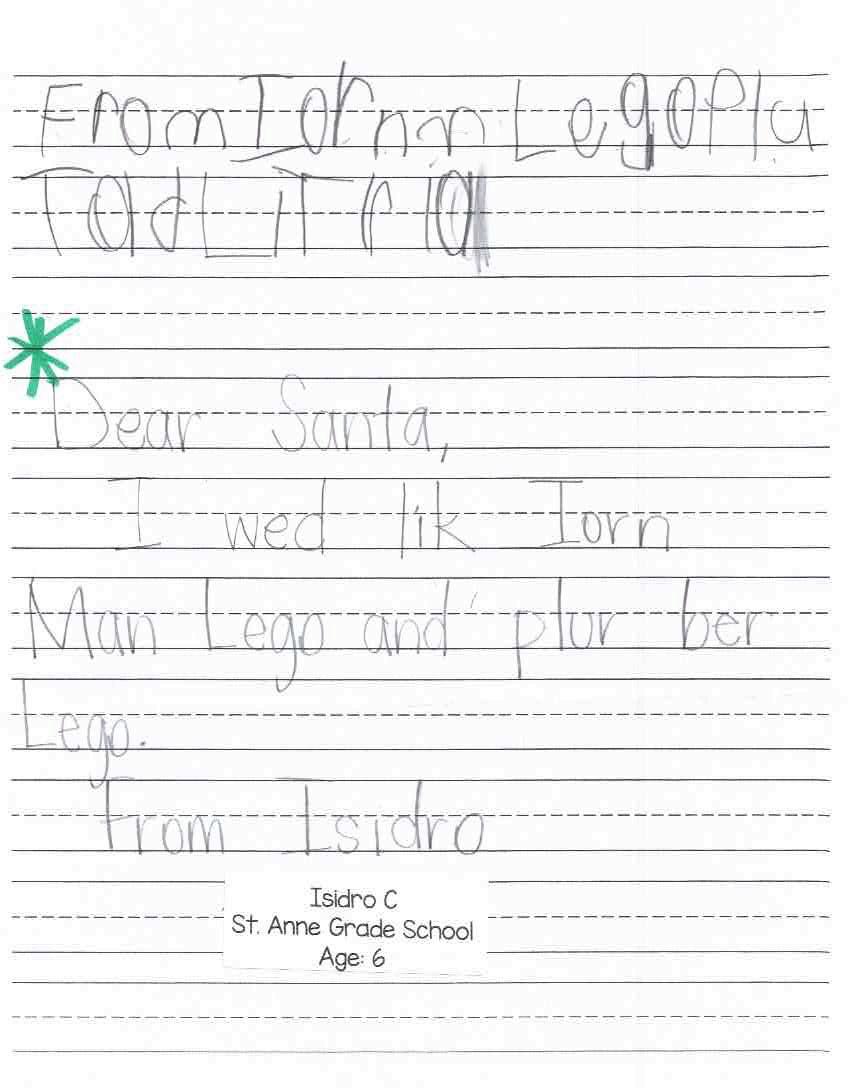 From Iornm LegoPlu
Dear Santa,
I wed lik Iorn
Man Lego and plur ber
Lego.
From Isidro
Isidro C
St. Anne Grade School
Age: 6